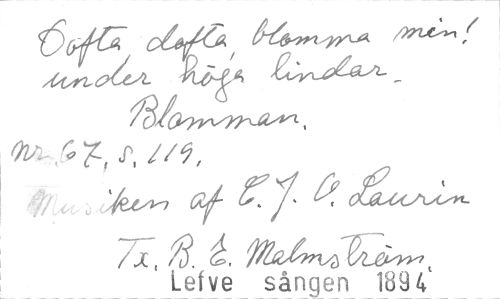 Dofta, dofta, blomma min!
under höga lindar.
Blomman.
Nr. 67, s. 119.
Musiken af C. J. O. Laurin
Tx. B. E. Malmström.
Lefve sången 1894